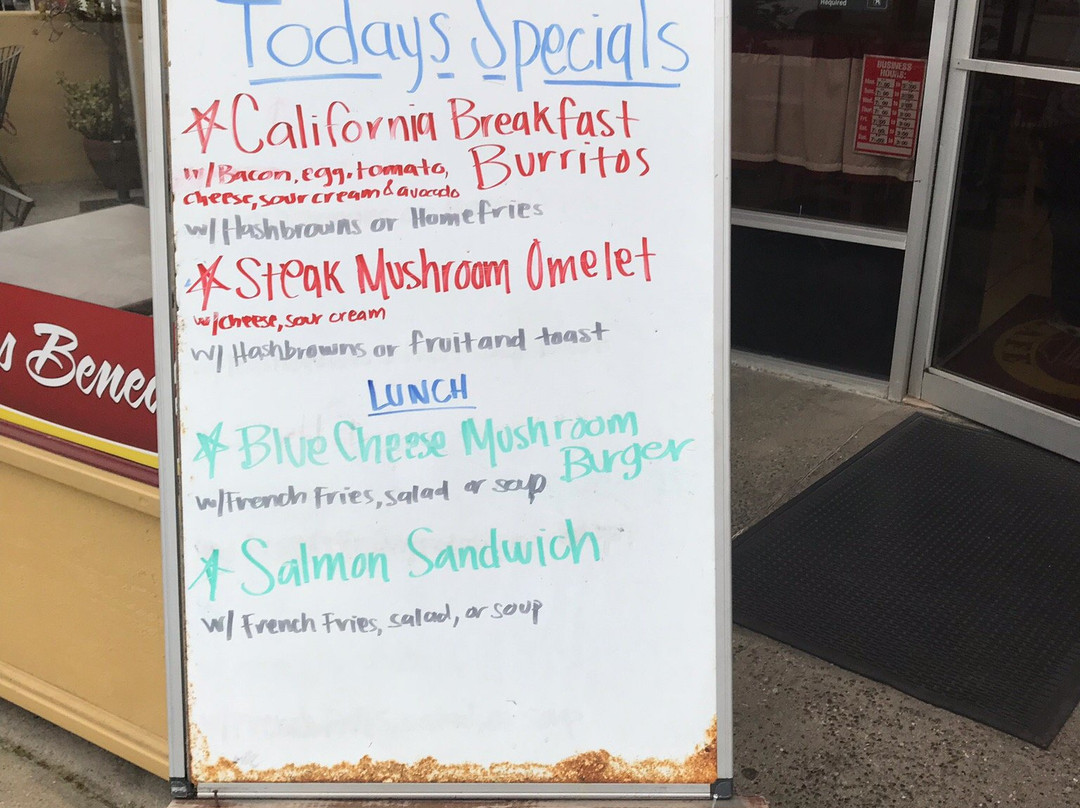 Todays Specials
California Breakfast
Burritos
w/Bacon, egg, tomato,
cheese, sour cream & avocado
w/Hashbrowns or Homefries
Steak Mushroom Omelet
w/cheese, sour cream
w/ Hashbrowns or fruit and toast
LUNCH
Blue Cheese Mushroom
Burger
w/French Fries, salad or soup
Salmon Sandwich
w/ French Fries, salad, or soup
s Bened
Required
BUSINESS
HOURS: